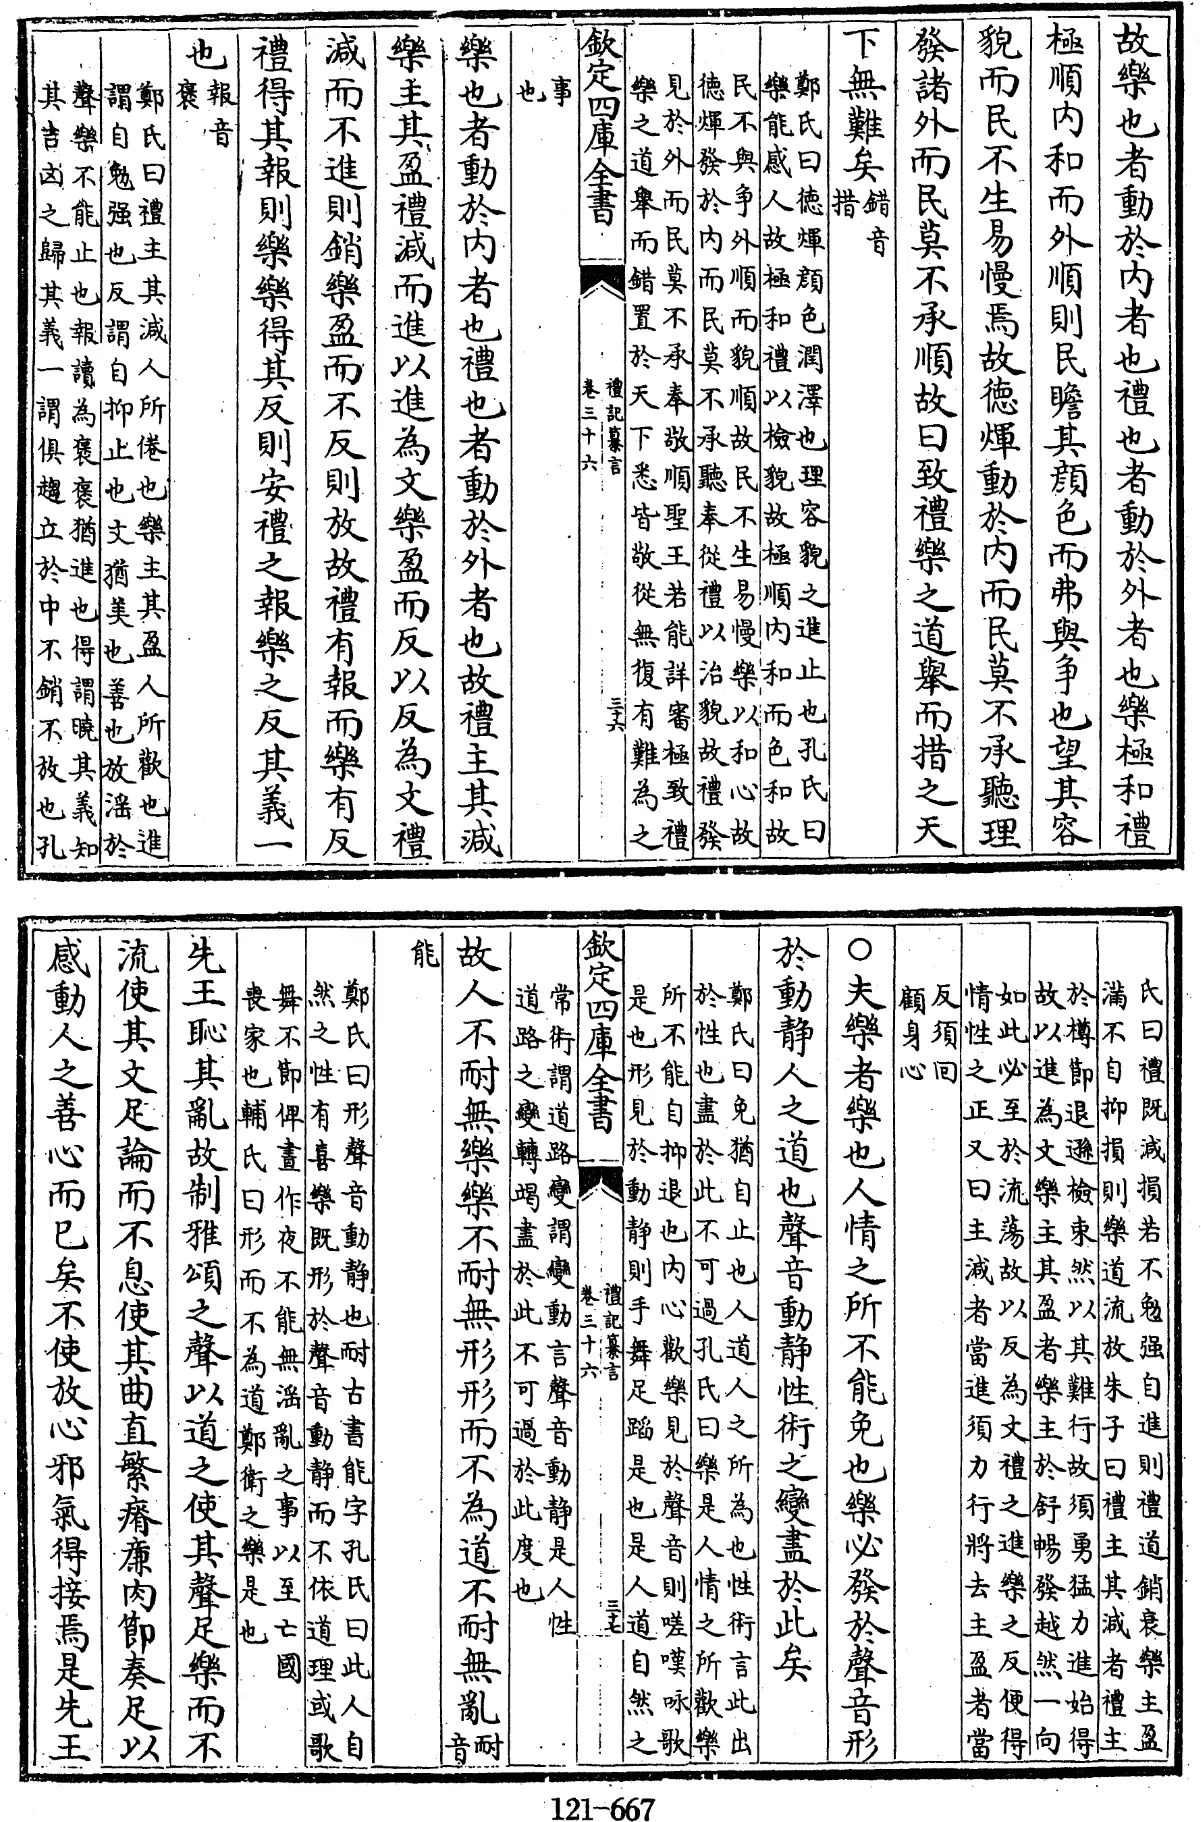 故樂也者動於内者也禮也者動於外者也樂極和禮
極順内和而外順則民瞻其顔色而弗與争也望其容
貌而民不生易慢焉故德煇動於内而民莫不承聽理
發諸外而民莫不承順故曰致禮樂之道舉而措之天
下無難矣錯音措
鄭氏曰德煇顔色潤澤也理容貌之進止也孔氏曰
樂能感人故極和禮以檢貌故極順内和而色和故
民不與争外順而貌順故民不生易慢樂以和心故
德煇發於内而民莫不承聽奉從禮以治貌故禮發
見於外而民莫不承奉敬順聖王若能詳審極致禮
樂之道舉而錯置於天下悉皆敬從無復有難為之
欽定四庫全書
禮記纂言
卷三十六
三十六
事
也
樂也者動於内者也禮也者動於外者也故禮主其減
樂主其盈禮減而進以進為文樂盈而反以反為文禮
減而不進則銷樂盈而不反則放故禮有報而樂有反
禮得其報則樂樂得其反則安禮之報樂之反其義一
也報音褒
鄭氏曰禮主其減人所倦也樂主其盈人所歡也進
謂自勉强也反謂自抑止也文猶美也善也放淫於
聲樂不能止也報讀為褒褒猶進也得謂曉其義知
其吉凶之歸其義一謂俱趨立於中不銷不放也孔
氏曰禮既減損若不勉强自進則禮道銷衰樂主盈
滿不自抑損則樂道流放朱子曰禮主其減者禮主
於撙節退遜檢束然以其難行故須勇猛力進始得
故以進為文樂主其盈者樂主於舒暢發越然一向
如此必至於流蕩故以反為文禮之進樂之反便得
情性之正又曰主減者當進須力行將去主盈者當
反須回
顧身心
○夫樂者樂也人情之所不能免也樂必發於聲音形
於動静人之道也聲音動静性術之變盡於此矣
鄭氏曰免猶自止也人道人之所為也性術言此出
於性也盡於此不可過孔氏曰樂是人情之所歡樂
所不能自抑退也内心歡樂見於聲音則嗟嘆咏歌
是也形見於動静則手舞足蹈是也是人道自然之
欽定四庫全書
禮記纂言
卷三十六
三十七
常術謂道路變謂變動言聲音動静是人性
道路之變轉竭盡於此不可過於此度也
故人不耐無樂樂不耐無形形而不為道不耐無亂耐音
能
鄭氏曰形聲音動静也耐古書能字孔氏曰此人自
然之性有喜樂既形於聲音動静而不依道理或歌
舞不節俾晝作夜不能無淫亂之事以至亡國
喪家也輔氏曰形而不為道鄭衛之樂是也
先王恥其亂故制雅頌之聲以道之使其聲足樂而不
流使其文足論而不息使其曲直繁瘠廉肉節奏足以
感動人之善心而已矣不使放心邪氣得接焉是先王
121-667